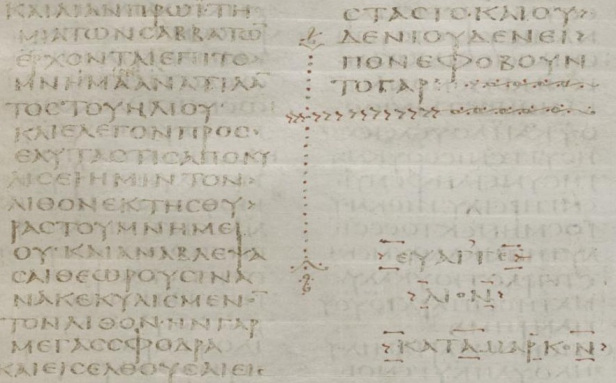 ΚΑΙΛΙΑΝΠΡΩΪΤΗ
ΜΙΑΤΩΝϹΑΒΒΑΤΩ̅
ΕΡΧΟΝΤΑΙΕΠΙΤΟ
ΜΝΗΜΑΑΝΑΤΙΛΑ̅
ΤΟϹΤΟΥΗΛΙΟΥ·
ΚΑΙΕΛΕΓΟΝΠΡΟϹ
ΕΑΥΤΑϹΤΙϹΑΠΟΚΥ
ΛΙϹΕΙΗΜΙΝΤΟΝ>
ΛΙΘΟΝΕΚΤΗϹΘΥ>
ΡΑϹΤΟΥΜΝΗΜΕΙ
ΟΥ·ΚΑΙΑΝΑΒΛΕΨΑ
ϹΑΙΘΕΩΡΟΥϹΙΝΑ
ΝΑΚΕΚΥΛΙϹΜΕΝΟ̅
ΤΟΝΛΙΘΟΝ·ΗΝΓΑΡ
ΜΕΓΑϹϹΦΟΔΡΑ
ΚΑΙΕΙϹΕΛΘΟΥϹΑΙΕΙϹ
ϹΤΑϹΙϹ·ΚΑΙΟΥ>
ΔΕΝΙΟΥΔΕΝΕΙ>
ΠΟΝΕΦΟΒΟΥΝ
ΤΟΓΑΡ·
ΕΥΑΓΓΕ
ΛΙΟΝ
ΚΑΤΑΜΑΡΚΟΝ